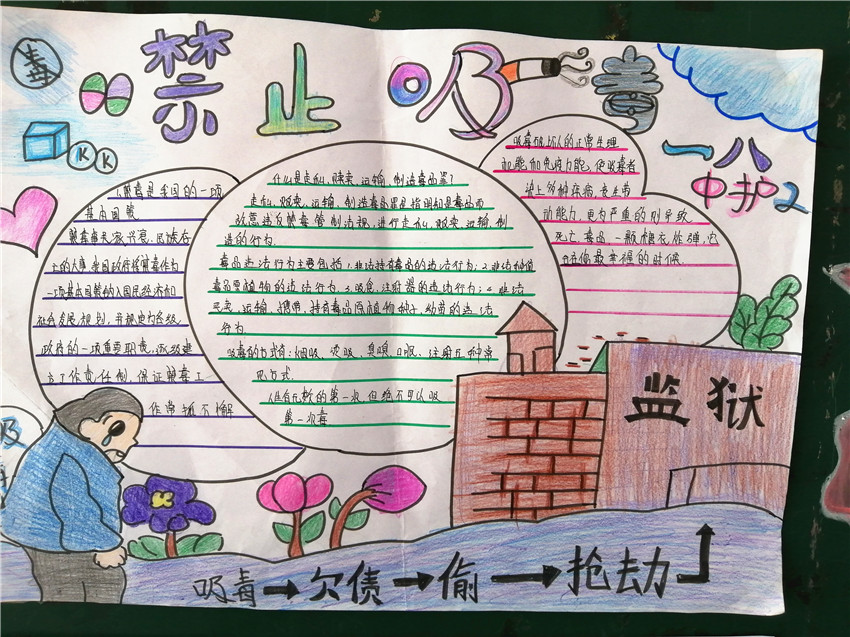 毒
禁止吸毒
K K
一八
中护2
禁毒是我国的一项
基本国策
禁毒事关国家兴衰，民族存
亡的大事 我国政府将禁毒作为
一项基本国策纳入国民经济和
社会发展规划，并规定为各级
政府的一项重要职责，逐级建
立了作责任制，保证禁毒工
作常抓不懈
什么是走私、贩卖、运输、制造毒品罪？
走私、贩卖、运输、制造毒品罪是指明知是毒品而
故意违反禁毒管制法规，进行走私、贩卖、运输、制
造的行为
毒品违法行为主要包括：1.非法持有毒品的违法行为；2.非法种植
毒品原植物的违法行为；3.吸食、注射毒品的违法行为；4.非法
买卖、运输、携带、持有毒品原植物种子、幼苗的违法
行为
吸毒的方式有：烟吸、烫吸、鼻嗅、口服、注射五种常
见方式
谁有无数的第一次，但绝不可以吸
第一次毒
吸毒破坏人的正常生理
机能和免疫力能，使吸毒者
染上各种疾病，丧失劳
动能力，更为严重的则导致
死亡 毒品一颗糖衣炸弹，它
在你最幸福的时候
吸
监狱
吸毒→欠债→偷→抢劫